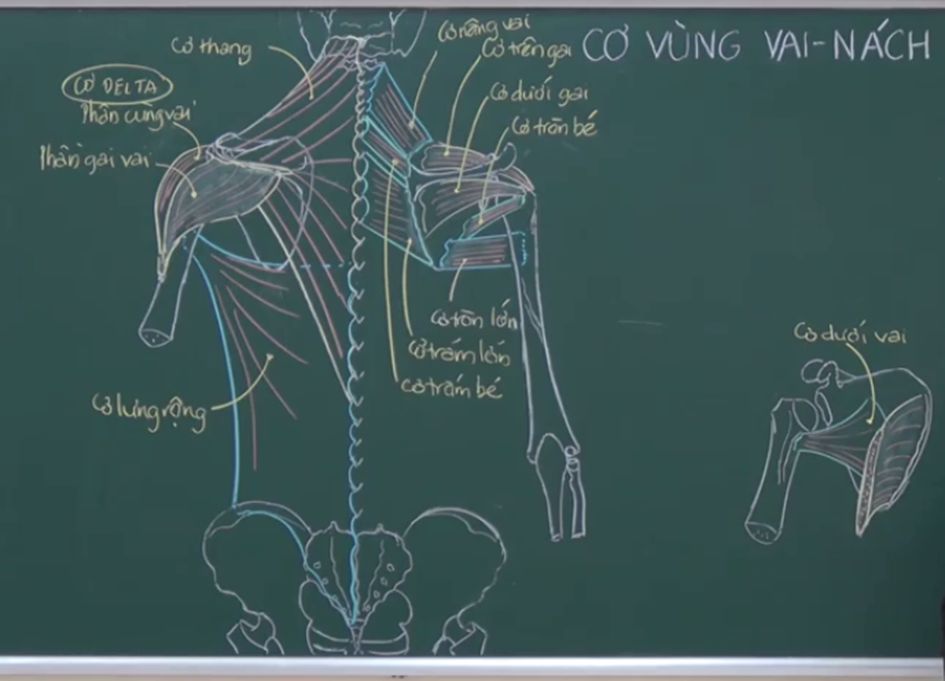 CƠ VÙNG VAI-NÁCH
Cơ thang
CƠ DELTA
Phần cùng vai
Phần gai vai
Cơ lưng rộng
Cơ nâng vai
Cơ trên gai
Cơ dưới gai
Cơ tròn bé
Cơ tròn lớn
Cơ trám lớn
Cơ trám bé
Cơ dưới vai